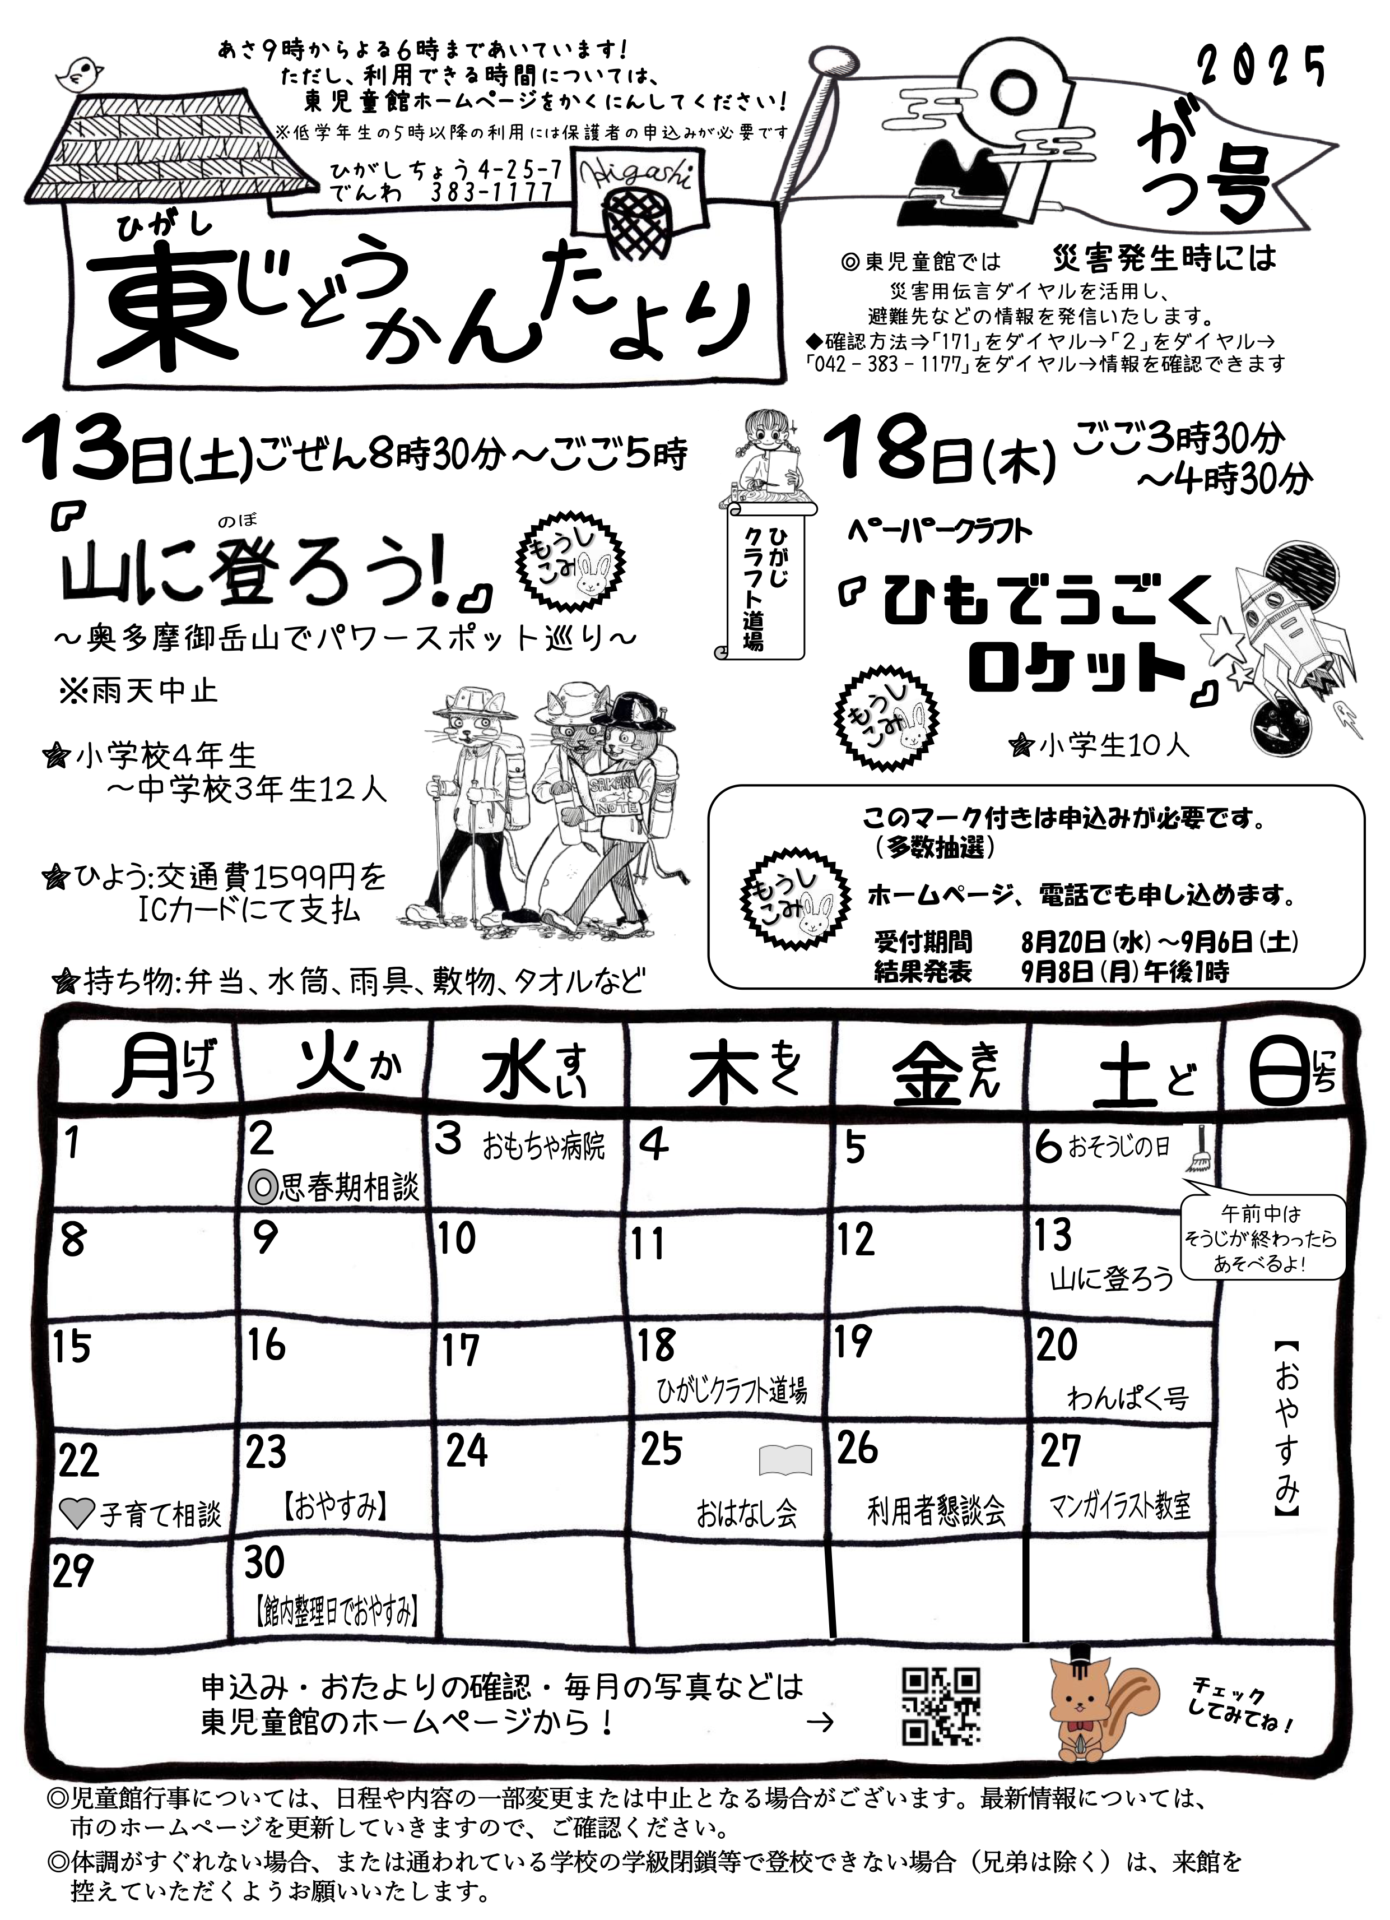 あさ9時からよる6時まであいています！
ただし、利用できる時間については、
東児童館ホームページをかくにんしてください！
※低学年生の5時以降の利用には保護者の申込みが必要です
ひがしちょう4-25-7
でんわ 383-1177
Higashi
ひがし
東じどうかんたより
2025
9
がつ号
◎東児童館では 災害発生時には
災害用伝言ダイヤルを活用し、
避難先などの情報を発信いたします。
◆確認方法⇒「171」をダイヤル→「2」をダイヤル→
「042－383－1177」をダイヤル→情報を確認できます
13日(土)ごぜん8時30分～ごご5時
のぼ
『山に登ろう!』
もうし
こみ
～奥多摩御岳山でパワースポット巡り～
※雨天中止
★小学校4年生
～中学校3年生12人
★ひよう:交通費1599円を
ICカードにて支払
★持ち物:弁当、水筒、雨具、敷物、タオルなど
SAKANA
NOTE
ひがじ
クラフト道場
18日(木) ごご3時30分
～4時30分
ペーパークラフト
『ひもでうごく
ロケット』
もうし
こみ
★小学生10人
もうし
こみ
このマーク付きは申込みが必要です。
（多数抽選）
ホームページ、電話でも申し込めます。
受付期間 8月20日(水)～9月6日(土)
結果発表 9月8日(月)午後1時
月げつ 火か 水すい 木もく 金きん 土ど 日にち
1
2
◎思春期相談
3 おもちゃ病院
4
5
6 おそうじの日
午前中は
そうじが終わったら
あそべるよ！
8
9
10
11
12
13
山に登ろう
15
16
17
18
ひがじクラフト道場
19
20
わんぱく号
【おやすみ】
22
子育て相談
23
【おやすみ】
24
25
おはなし会
26
利用者懇談会
27
マンガイラスト教室
29
30
【館内整理日でおやすみ】
申込み・おたよりの確認・毎月の写真などは
東児童館のホームページから！ →
チェック
してみてね！
◎児童館行事については、日程や内容の一部変更または中止となる場合がございます。最新情報については、
市のホームページを更新していきますので、ご確認ください。
◎体調がすぐれない場合、または通われている学校の学級閉鎖等で登校できない場合（兄弟は除く）は、来館を
控えていただくようお願いいたします。